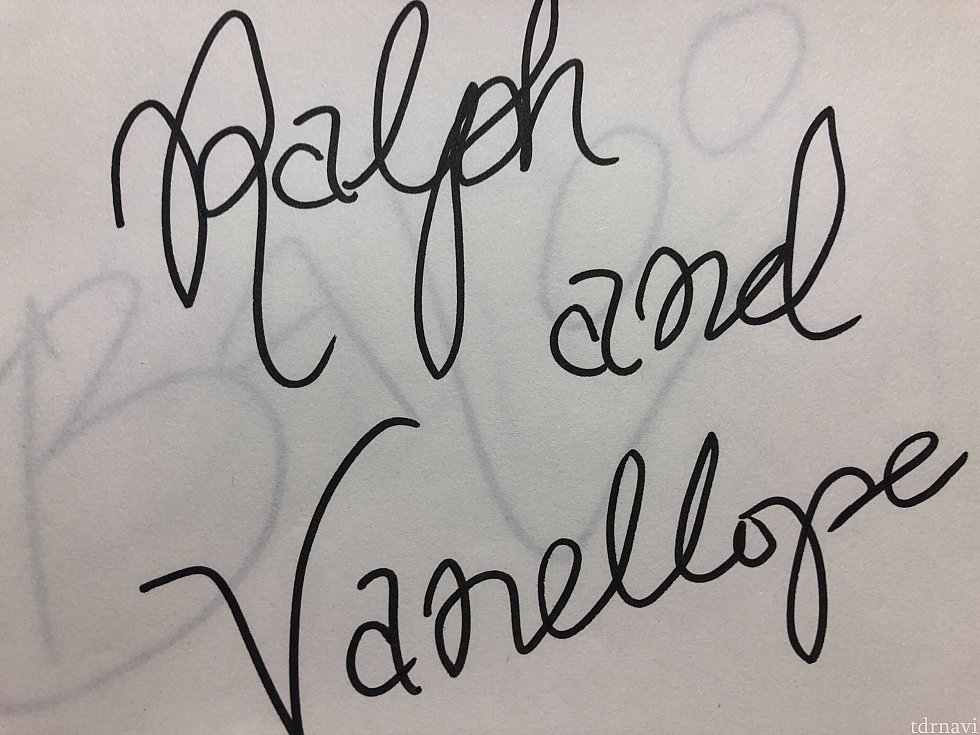 Ralph
and
Vanellope
tdrnavi